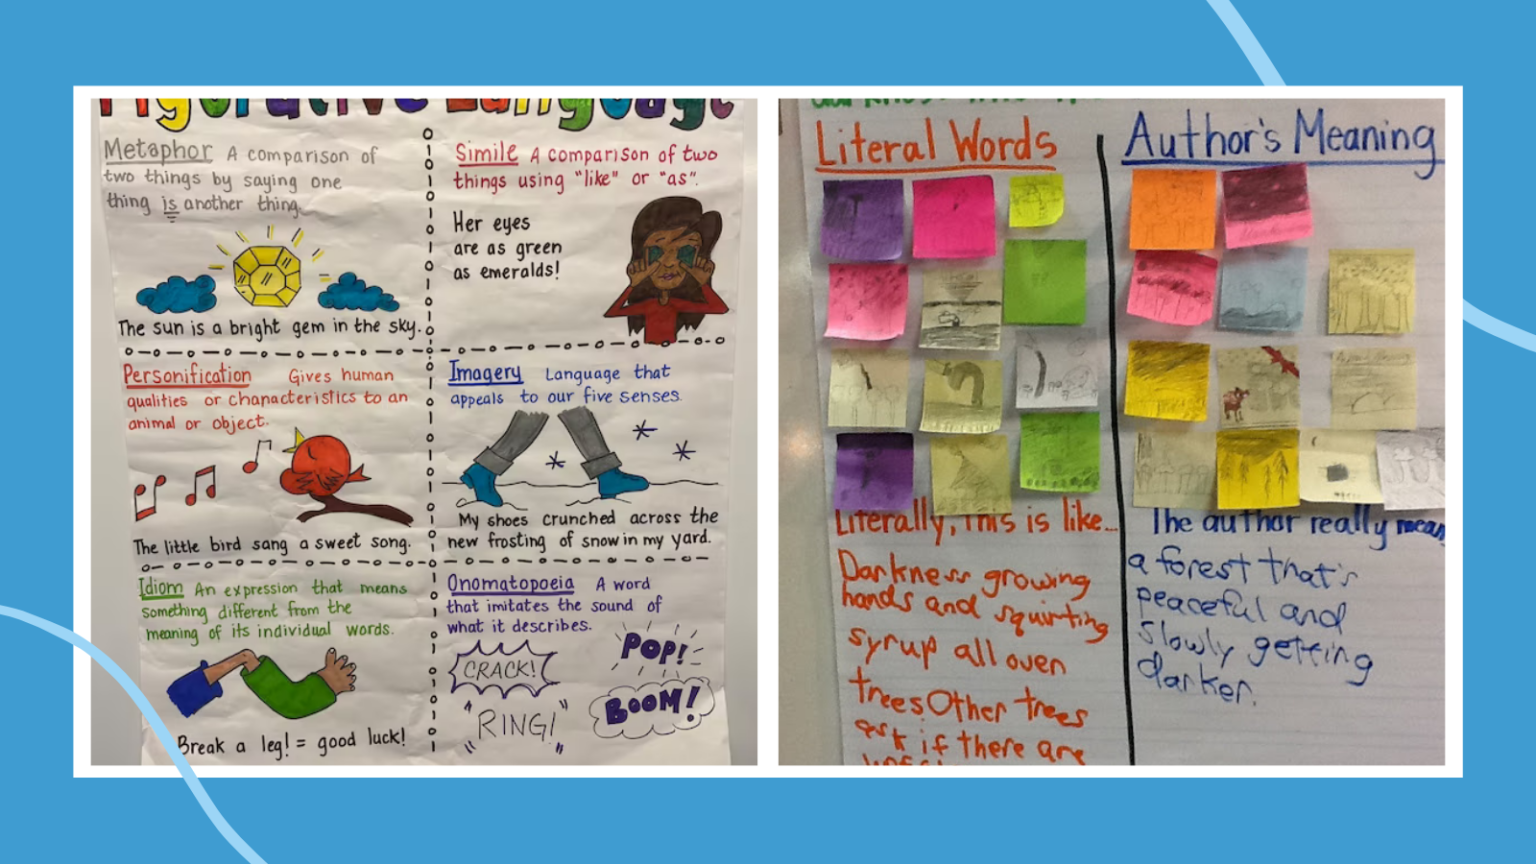 Figurative Language
Metaphor A comparison of
two things by saying one
thing is another thing.
The sun is a bright gem in the sky.
Simile A comparison of two
things using "like" or "as".
Her eyes
are as green
as emeralds!
Personification Gives human
qualities or characteristics to an
animal or object.
The little bird sang a sweet song.
Imagery Language that
appeals to our five senses.
My shoes crunched across the
new frosting of snow in my yard.
Idiom An expression that means
something different from the
meaning of its individual words.
Break a leg! = good luck!
Onomatopoeia A word
that imitates the sound of
what it describes.
CRACK!
POP!
"RING!"
BOOM!
Literal Words
Literally, this is like...
Darkness growing
hands and squirting
syrup all over
trees Other trees
ask if there are
Author's Meaning
The author really mean
a forest that's
peaceful and
slowly getting
darker.